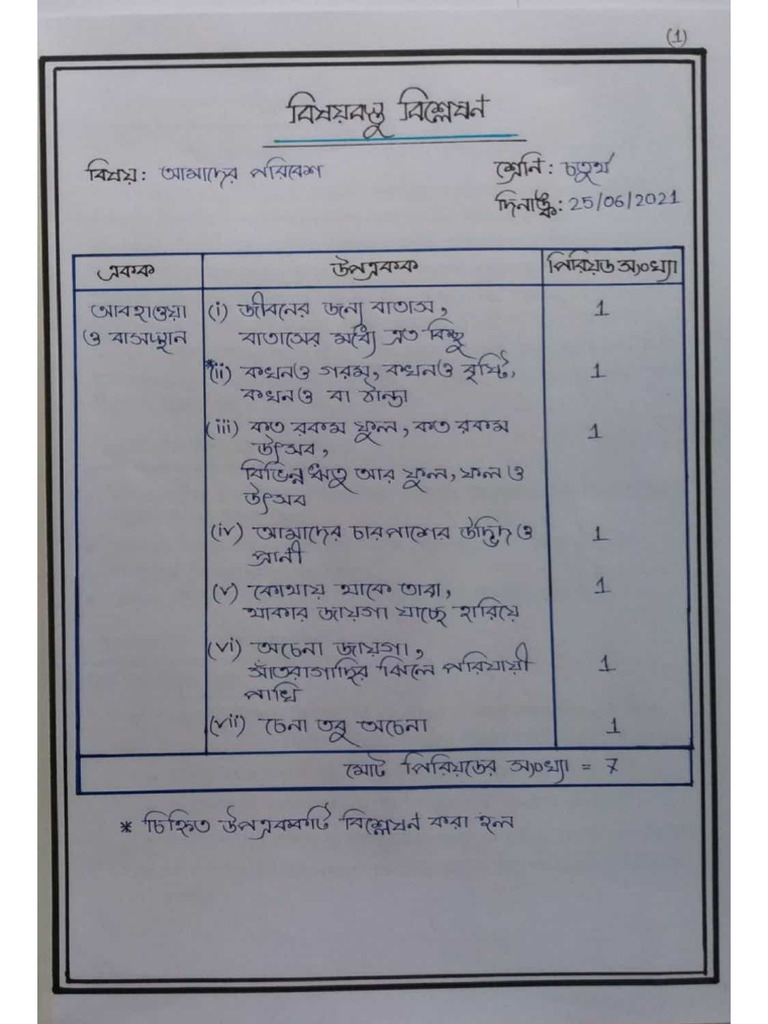 (1)
বিষয়বস্তু বিশ্লেষণ
বিষয়: আমাদের পরিবেশ
শ্রেনি: চতুর্থ
দিনাঙ্ক: 25/06/2021
একক
উপএকক
পিরিয়ড সংখ্যা
আবহাওয়া
ও বাসস্থান
(i) জীবনের জন্য বাতাস,
বাতাসের মধ্যে এত কিছু
1
*(ii) কখনও গরম, কখনও বৃষ্টি,
কখনও বা ঠান্ডা
1
(iii) কত রকম ফুল, কত রকম
উৎসব,
বিভিন্ন ঋতু আর ফুল, ফল ও
উৎসব
1
(iv) আমাদের চারপাশের উদ্ভিদ ও
প্রানী
1
(v) কোথায় থাকে তারা,
থাকার জায়গা যাচ্ছে হারিয়ে
1
(vi) অচেনা জায়গা,
সাঁতরাগাছির ঝিলে পরিযায়ী
পাখি
1
(vii) চেনা তবু অচেনা
1
মোট পিরিয়ডের সংখ্যা = 7
* চিহ্নিত উপএককটি বিশ্লেষণ করা হল